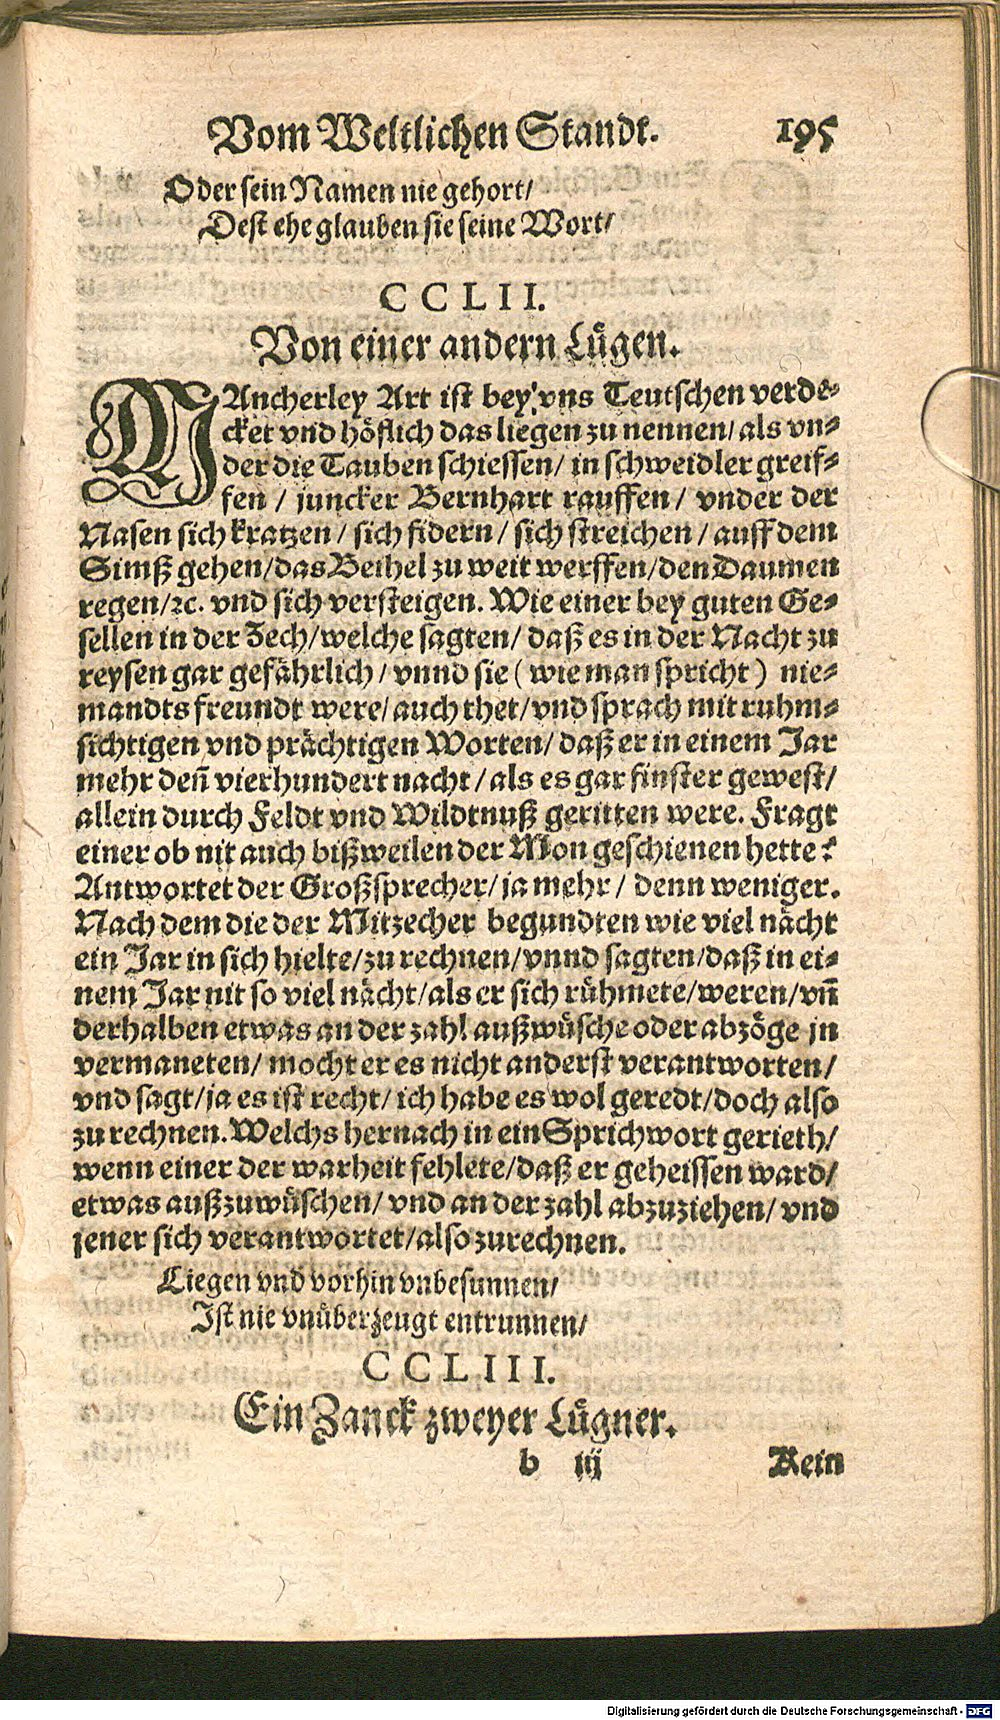 Vom Weltlichen Standt. 195
Oder sein Namen nie gehort/
Dest ehe glauben sie seine Wort/
CCLII.
Von einer andern Lügen.
MAncherley Art ist bey vns Teutschen verde-
cket vnd höflich das liegen zu nennen/ als vn-
der die Tauben schiessen/ in schweidler greif-
fen / juncker Bernhart rauffen/ vnder der
Nasen sich kratzen / sich fidern / sich streichen / auff dem
Simß gehen/das Beihel zu weit werffen/den Daumen
regen/ꝛc. vnd sich versteigen. Wie einer bey guten Ge-
sellen in der Zech/welche sagten/ daß es in der Nacht zu
reysen gar gefährlich/ vnnd sie (wie man spricht) nie-
mandts freundt were/ auch thet/vnd sprach mit ruhm-
sichtigen vnd prächtigen Worten/ daß er in einem Jar
mehr deñ vierhundert nacht/als es gar finster gewest/
allein durch Feldt vnd Wildtnuß geritten were. Fragt
einer ob nit auch bißweilen der Mon geschienen hette?
Antwortet der Großsprecher/ja mehr/ denn weniger.
Nach dem die der Mitzecher begundten wie viel nächt
ein Jar in sich hielte/zu rechnen/vnnd sagten/daß in ei-
nem Jar nit so viel nächt/als er sich rühmete/weren/vñ
derhalben etwas an der zahl außwüsche oder abzöge jn
vermaneten/ mocht er es nicht anderst verantworten/
vnd sagt/ja es ist recht/ ich habe es wol geredt/doch also
zu rechnen. Welchs hernach in ein Sprichwort gerieth/
wenn einer der warheit fehlete/daß er geheissen ward/
etwas außzuwüschen/ vnd an der zahl abzuziehen/ vnd
jener sich verantwortet/also zurechnen.
Liegen vnd vorhin vnbesunnen/
Ist nie vnüberzeugt entrunnen/
CCLIII.
Ein Zanck zweyer Lügner.
b iij Kein
Digitalisierung gefördert durch die Deutsche Forschungsgemeinschaft - DFG